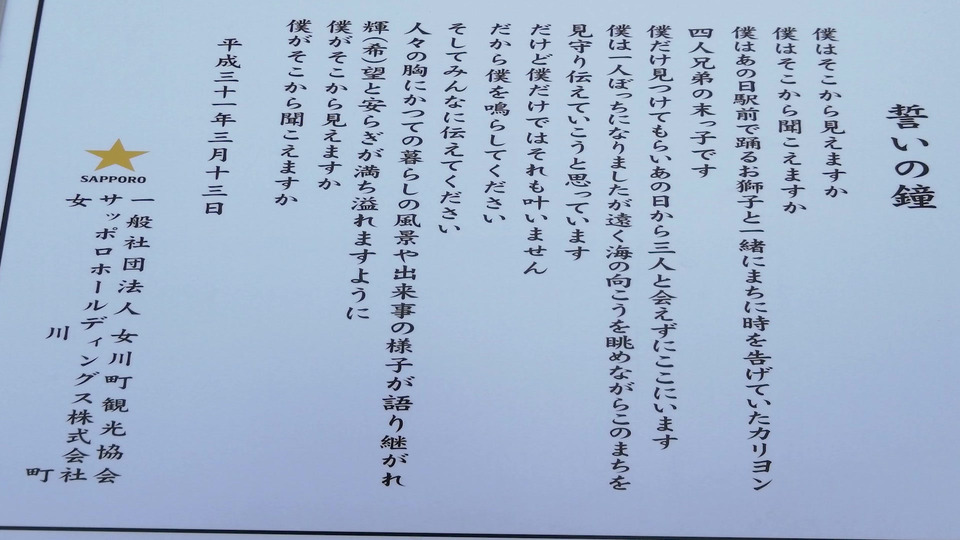 誓いの鐘
僕はそこから見えますか
僕はそこから聞こえますか
僕はあの日駅前で踊るお獅子と一緒にまちに時を告げていたカリヨン
四人兄弟の末っ子です
僕だけ見つけてもらいあの日から三人と会えずにここにいます
僕は一人ぼっちになりましたが遠く海の向こうを眺めながらこのまちを
見守り伝えていこうと思っています
だけど僕だけではそれも叶いません
だから僕を鳴らしてください
そしてみんなに伝えてください
人々の胸にかつての暮らしの風景や出来事の様子が語り継がれ
輝(希)望と安らぎが満ち溢れますように
僕がそこから見えますか
僕がそこから聞こえますか
平成三十一年三月十三日
一般社団法人女川町観光協会
サッポロホールディングス株式会社
女川町
SAPPORO